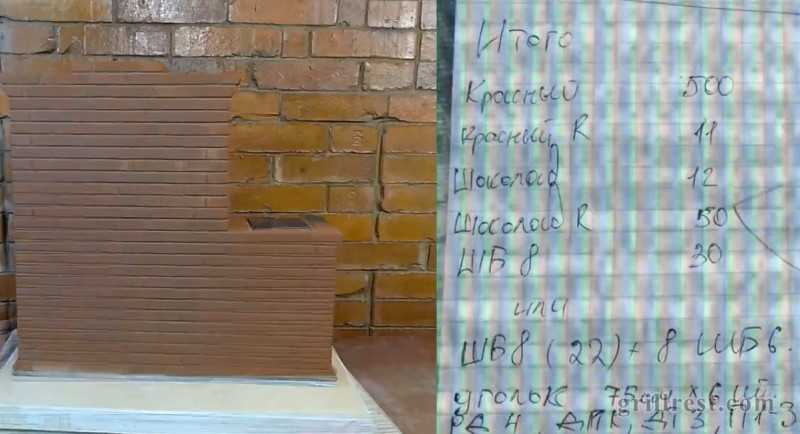 Итого
Красный 500
Красный R 11
Шоколад 12
Шоколад R 50
ШБ 8 30
или
ШБ8 (22) + 8 ШБ6.
уголок 75
grillrest.com